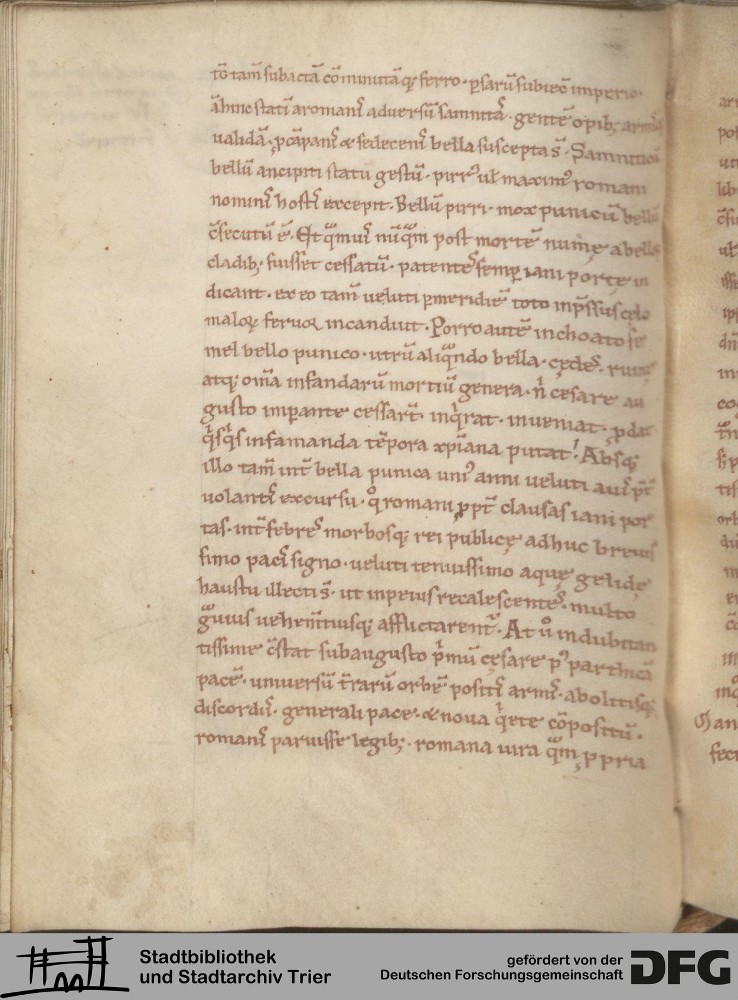 tō tam̄ subactā cōminutāq; ferro · ꝑsarū subiec̄ imperio ·
ab hinc stati a romanis adversū samnitā · gentē opib; armisq;
validā · ꝓ cāpanis & sedecenis bella suscepta s̄ · Samniticū
bellū ancipiti statu gestū · pirrꝰ ul maximꝰ romani
nominis hostis excepit · Bellū pirri · mox punicū bellū
c̄secutū ē · Et qͣmuis nūqͣm post mortē nume a bellis
cladib; fuisset cessatū · patentes semꝑ iani portę in
dicant · ex eo tam̄ veluti ꝑ meridiē toto inpssus cęlo
malorꝝ fervor incanduit · Porro autē inchoato se
mel bello punico · utrū aliqͣndo bella · cędes · ruinę
atq; om̄a infandarū mortiū genera · n̄ cesare au
gusto imꝑante cessarī · inqrat · inveniat · ꝓdat
qͥsqͥs infamanda tēpora xp̄iana putat · Absq;
illo tam̄ int̄ bella punica uniꝰ anni veluti avis p̄t̄
volantis excursu · qͦ romani ꝓpt̄ clausas iani por
tas · int̄ febres morbosq; rei publicę adhuc brevis
simo pacis signo · veluti tenuissimo aquę gelidę
haustu illecti s̄ · ut in peius recalescentes · multo
gͣvius vehem̄tiusq; afflictarent̄ · At v̊ indubitan
tissime c̄stat sub augusto p̄mū cęsare pꝰ parthicā
pacē · universū t̄rarū orbē positis armis · abolitisq;
discordiis · generali pace · & nova qͥete cōpositū ·
romanis paruisse legib; · romana iura qͣm ꝓpria
Stadtbibliothek
und Stadtarchiv Trier
gefördert von der
Deutschen Forschungsgemeinschaft
DFG